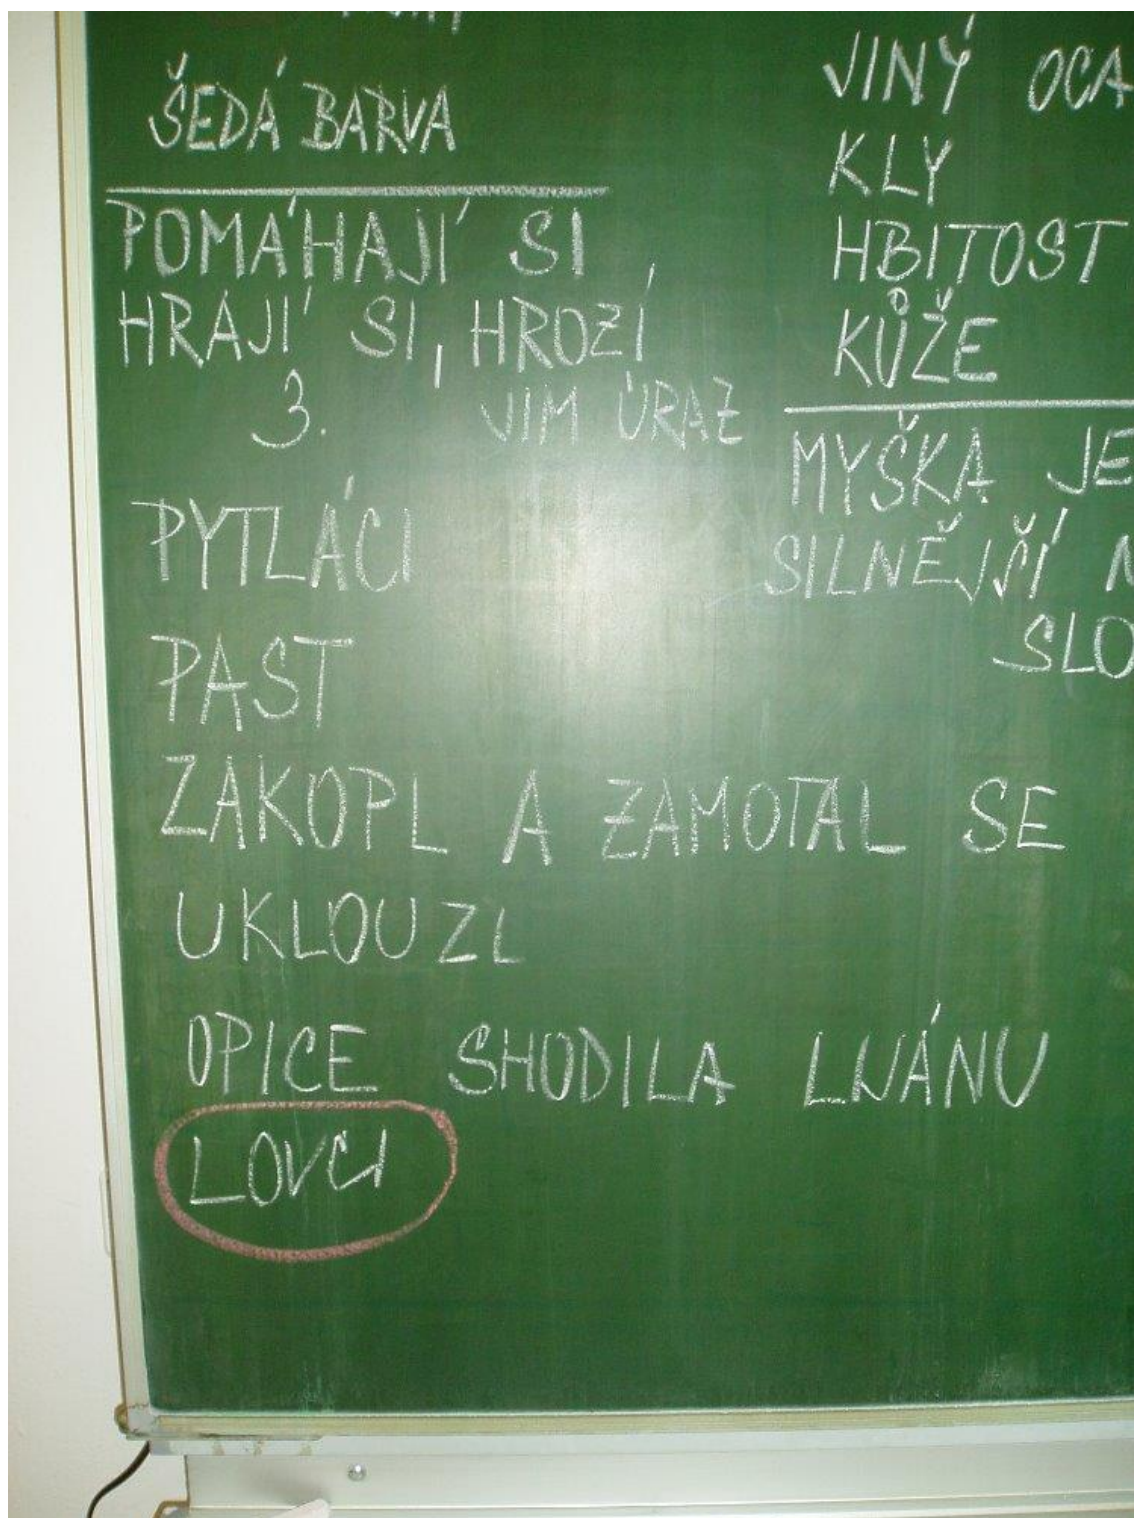 ŠEDÁ BARVA
POMÁHAJÍ SI
HRAJÍ SI, HROZÍ
JIM ÚRAZ
3.
PYTLÁCI
PAST
ZAKOPL A ZAMOTAL SE
UKLOUZL
OPICE SHODILA LIJÁNU
LOVCI
JINÝ OCA
KLY
HBITOST
KŮŽE
MYŠKA JE
SILNĚJŠÍ N
SLO